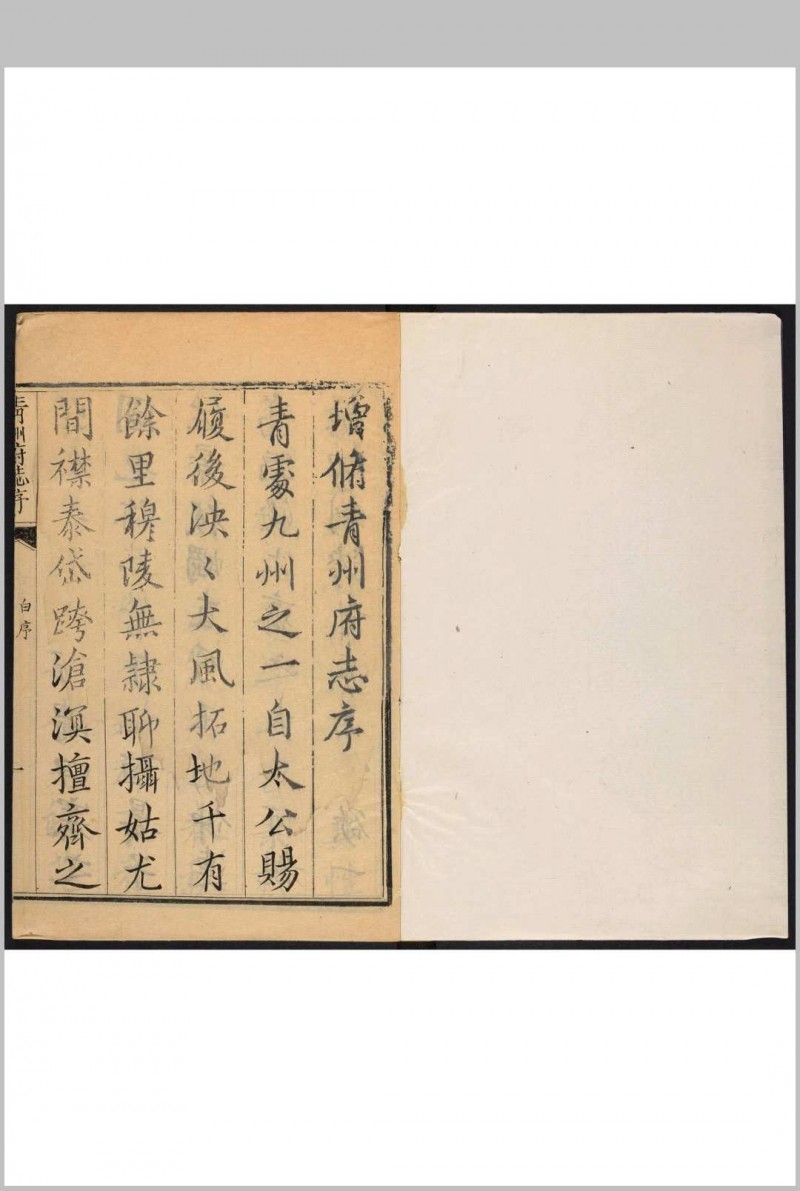 增脩青州府志序
青處九州之一自太公賜
履後泱〻大風拓地千有
餘里穆陵無隸聊攝姑尤
間襟泰岱跨滄溟擅齊之
青州府志序
白序
一